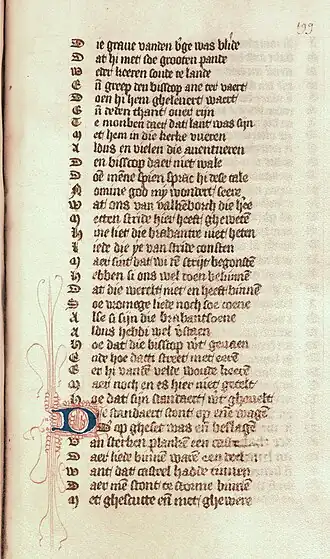 199
Die graue vanden b'ge was blide
Dat hi met soe grooten pande
Weder keeren soude te lande
En greep den bisscop ane ter vaert
Doen hi hem ghelevert waert
En deden thant over rijn
Te monben daer dat lant was sijn
Met hem in die kerke vueren
Aldus en vielen die auentueren
Den bisscop daer niet wale
Doe mene spien sprac hi dese tale
Nomine god my wondert seere
Wat ons van valkenborch die hee
Metten stride hier heeft gheweten
Hine liet die brabantre niet heten
Liede die ye van stride consten
Maer sint dat wi den strijt begonsten
Hebben si ons wel doen bekinnen
Dat die werelt niet en heeft binnen
Soe vromege liede noch soe coene
Alse si sijn die brabantsoene
Aldus hebdi wel v'staen
Hoe dat die bisscop wt geuaen
Ende hoe datti street met eere
En hi vanden velde woude keeren
Maer noch en es hier niet getelt
Hoe dat sijn standaert wt ghevelt
Die standaert stont op ene wagen
Die op gheset was en beslagen
Van sterken planken een
Daer liede binnen waren een
Want dat casteel hadde tinnen
Daer men stont te storme binnen
Met ghescutte en met ghewere